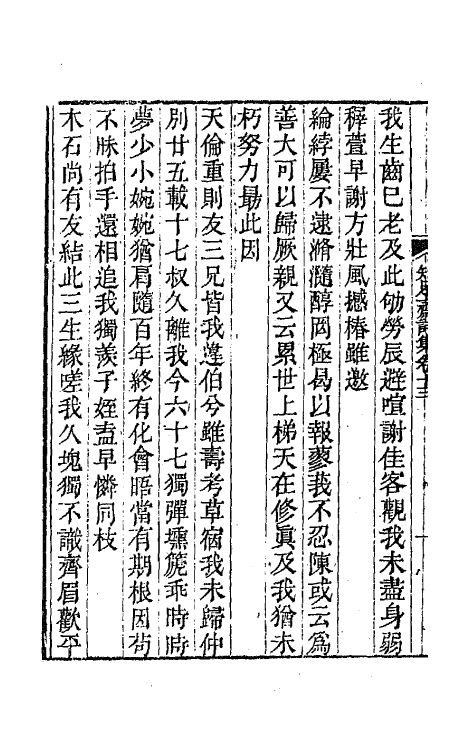 我生齒已老及此劬勞辰避喧謝佳客觀我未盡身弱
穉萱早謝方壯風撼椿雖邀
綸綍屢不逮滫瀡醇罔極曷以報蓼莪不忍陳或云為
善大可以歸厥親又云累世上梯天在修眞及我猶未
朽努力勗此因
天倫重則友三兄皆我逢伯兮雖壽考草宿我未歸仲
別廿五載十七叔久離我今六十七獨彈壎篪乖時時
夢少小婉婉猶肩隨百年終有化會晤當有期根因茍
不昧拍手還相追我獨羨子姪盍早憐同枝
木石尚有友結此三生緣嗟我久塊獨不識齊眉歡平
齋詩集卷十三